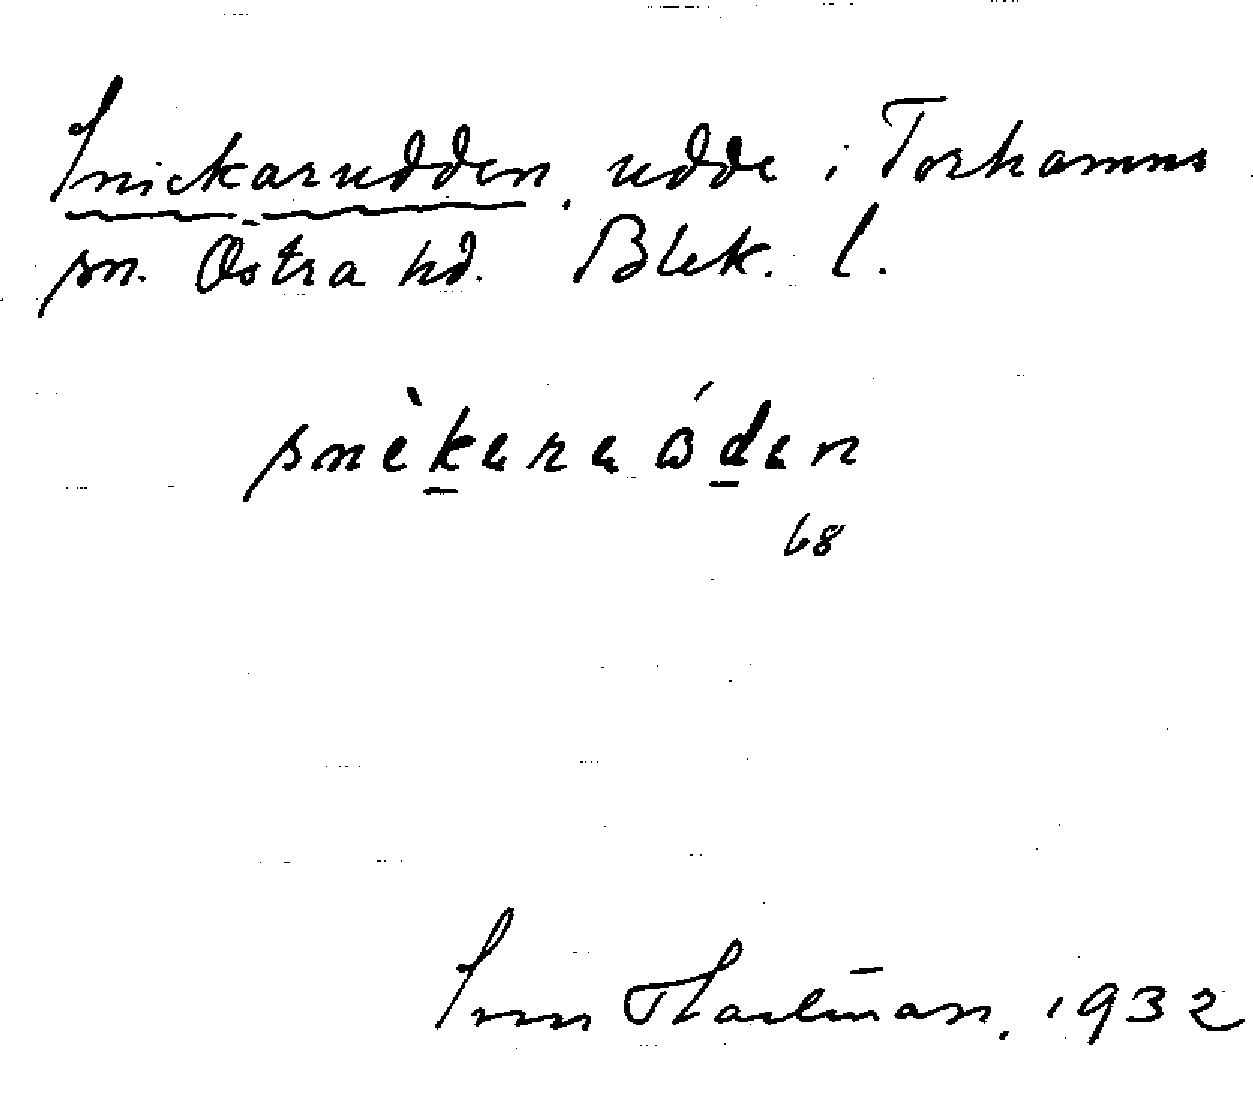 Snickarudden, udde i Torhamns
sn. Östra hd. Blek. l.
snèkara óden
68
Sven Hartman. 1932